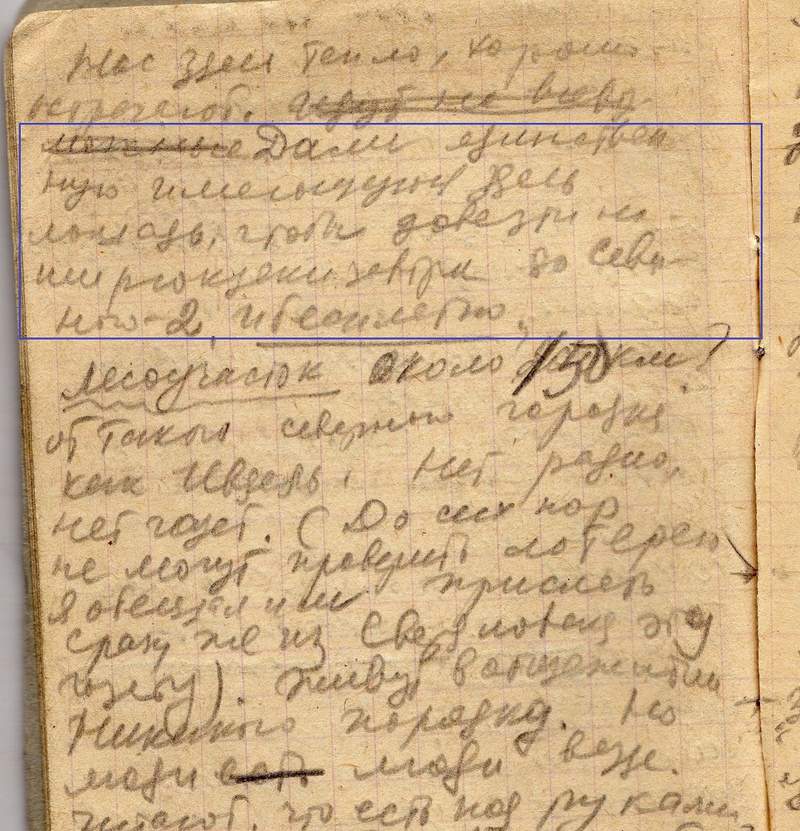 Нас здесь тепло, хорошо
встречают. Идут на всево
можные Дали единствен
ную имеющуюся здесь
лошадь, чтобы довезти на-
ши рюкзаки завтра до Севе-
ного-2, и бесплатно,
Лесоучасток около 150 км?
от такого северного городка
как Ивдель. Нет радио,
нет газет. (До сих пор
не могут проверить лотерею
Я обещал им прислать
сразу же из Свердловска эту
газету). Живут в общежитии
Никакого порядка. Но
люди есть люди везде.
Читают, что есть под руками